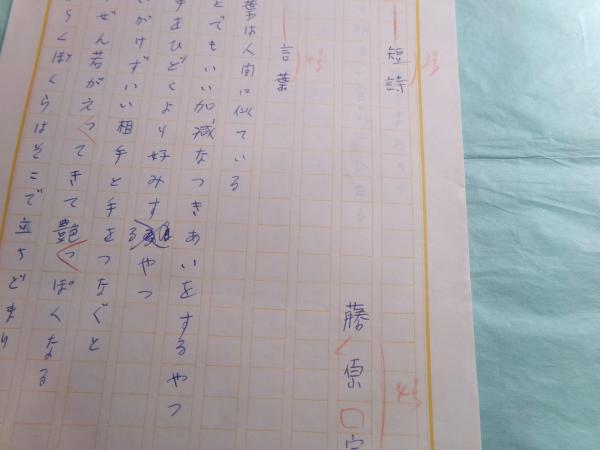 短詩
3号
藤原
4号
言葉
4号
葉は人間に似ている
とでもいい加減なつきあいをするやつ
手をひどくより好みするやつ
いがけずいい相手と手をつなぐと
ぜん若がえってきて艶っぽくなる
らくぼくらはそこで立ちどまり